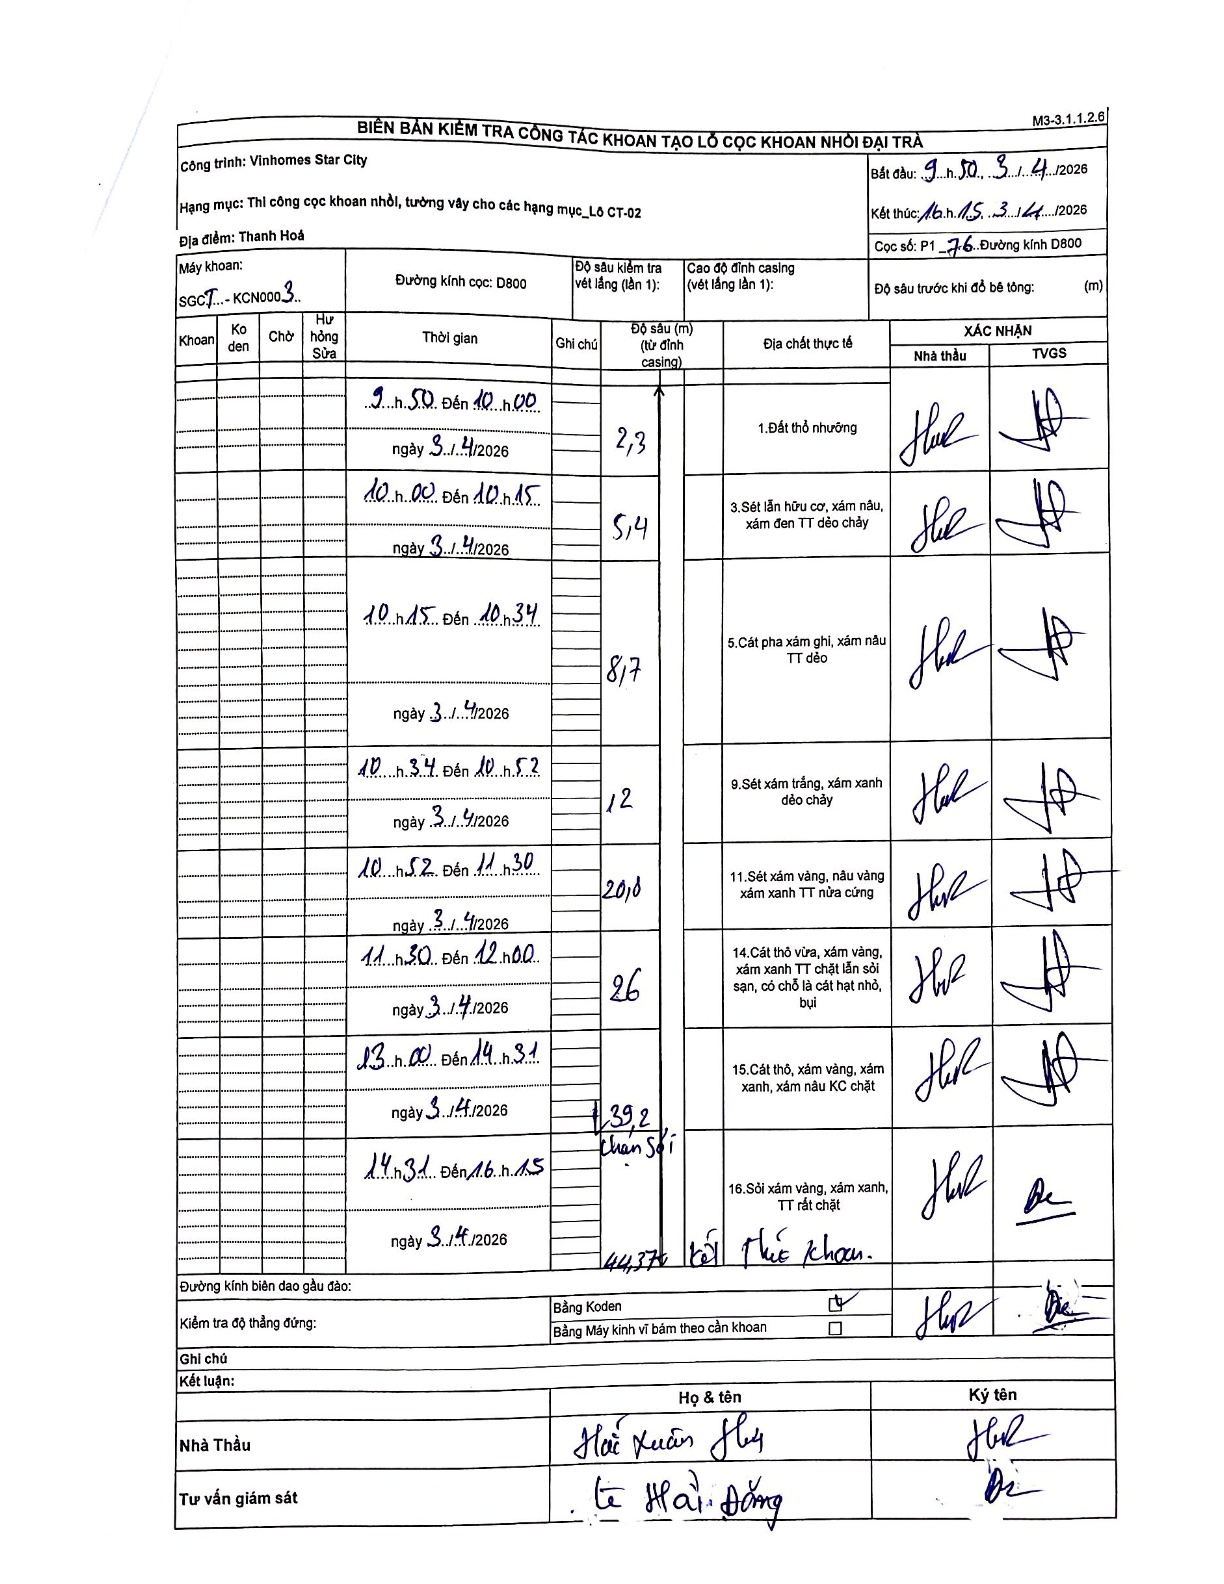 M3-3.1.1.2.6
BIÊN BẢN KIỂM TRA CÔNG TÁC KHOAN TẠO LỖ CỌC KHOAN NHỒI ĐẠI TRÀ
Công trình: Vinhomes Star City
Hạng mục: Thi công cọc khoan nhồi, tường vây cho các hạng mục_Lô CT-02
Địa điểm: Thanh Hoá
Bắt đầu: 9 h 50, 3 / 4 /2026
Kết thúc: 16 h 15, 3 / 4 /2026
Cọc số: P1 _76 Đường kính D800
Máy khoan:
SGCT - KCN0003
Đường kính cọc: D800
Độ sâu kiểm tra
vét lắng (lần 1):
Cao độ đỉnh casing
(vét lắng lần 1):
Độ sâu trước khi đổ bê tông: (m)
Khoan
Ko
den
Chờ
Hư
hỏng
Sửa
Thời gian
Ghi chú
Độ sâu (m)
(từ đỉnh
casing)
Địa chất thực tế
XÁC NHẬN
Nhà thầu
TVGS
9 h 50 Đến 10 h 00
ngày 3 / 4 /2026
2,3
1.Đất thổ nhưỡng
10 h 00 Đến 10 h 15
ngày 3 / 4 /2026
5,4
3.Sét lẫn hữu cơ, xám nâu,
xám đen TT dẻo chảy
10 h 15 Đến 10 h 34
ngày 3 / 4 /2026
8,7
5.Cát pha xám ghi, xám nâu
TT dẻo
10 h 34 Đến 10 h 52
ngày 3 / 4 /2026
12
9.Sét xám trắng, xám xanh
dẻo chảy
10 h 52 Đến 11 h 30
ngày 3 / 4 /2026
11.Sét xám vàng, nâu vàng
xám xanh TT nửa cứng
11 h 30 Đến 12 h 00
ngày 3 / 4 /2026
26
14.Cát thô vừa, xám vàng,
xám xanh TT chặt lẫn sỏi
sạn, có chỗ là cát hạt nhỏ,
bụi
13 h 00 Đến 14 h 31
ngày 3 / 4 /2026
39,2
15.Cát thô, xám vàng, xám
xanh, xám nâu KC chặt
14 h 31 Đến 16 h 15
ngày 3 / 4 /2026
Chạm Sỏi
16.Sỏi xám vàng, xám xanh,
TT rất chặt
kết Thúc khoan.
Đường kính biên dao gầu đào:
Kiểm tra độ thẳng đứng:
Bằng Koden ☑
Bằng Máy kinh vĩ bám theo cần khoan ☐
Ghi chú
Kết luận:
Họ & tên
Ký tên
Nhà Thầu
Xuân
Tư vấn giám sát
Hải Đăng